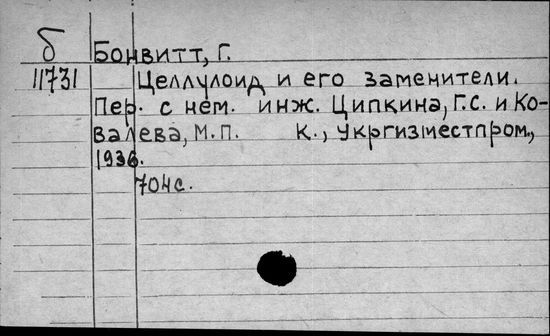 б Бонвитт, Г.
11731 Целлулоид и его заменители.
Пер. с нем. инж. Ципкина, Г.С. и Ко-
валева, М.П. К., Укргизместпром,
1936.
704с.